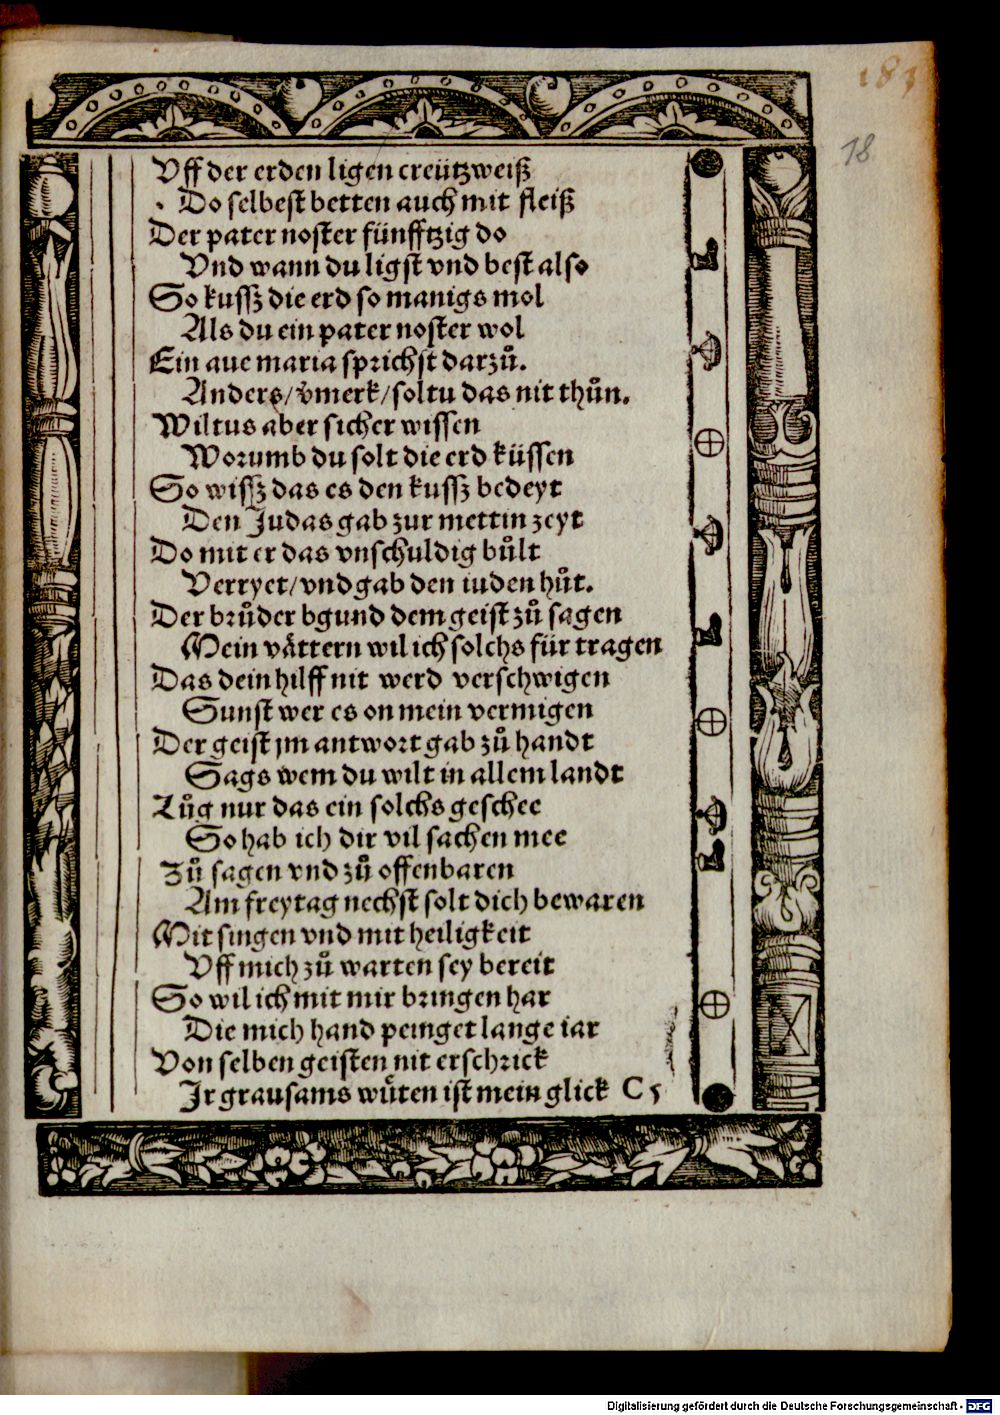 183
18
Vff der erden ligen creützweiß
Do selbest betten auch mit fleiß
Der pater noster fünfftzig do
Vnd wann du ligst vnd best also
So kussz die erd so manigs mol
Als du ein pater noster wol
Ein aue maria sprichst darzů.
Anders/vmerk/soltu das nit thůn.
Wiltus aber sicher wissen
Worumb du solt die erd küssen
So wissz das es den kussz bedeyt
Den Judas gab zur mettin zeyt
Do mit er das vnschuldig bůlt
Verryet/vnd gab den iuden hůt.
Der brůder bgund dem geist zů sagen
Mein våttern wil ich solchs für tragen
Das dein hilff nit werd verschwigen
Sunst wer es on mein vermigen
Der geist jm antwort gab zů handt
Sags wem du wilt in allem landt
Lůg nur das ein solchs geschee
So hab ich dir vil sachen mee
Zů sagen vnd zů offenbaren
Am freytag nechst solt dich bewaren
Mit singen vnd mit heiligkeit
Vff mich zů warten sey bereit
So wil ich mit mir bringen har
Die mich hand peinget lange iar
Von selben geisten nit erschrick
Jr grausams wůten ist mein glick C 5
Digitalisierung gefördert durch die Deutsche Forschungsgemeinschaft - DFG